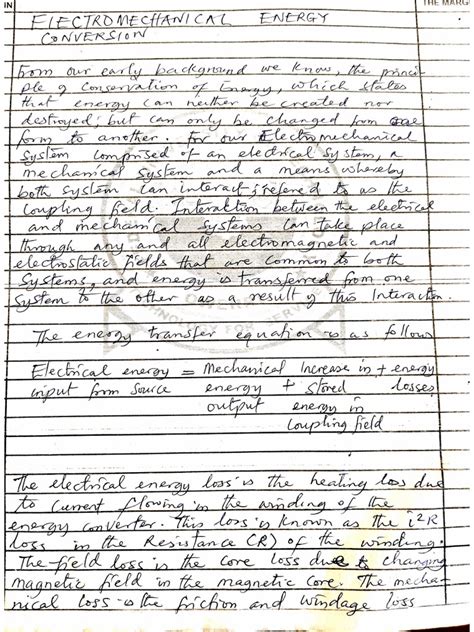 IN
THE MARG
ELECTROMECHANICAL ENERGY
CONVERSION
From our early background we know, the princi-
ple of Conservation of Energy, which states
that energy can neither be created nor
destroyed, but can only be changed from one
form to another. For our Electromechanical
system comprised of an electrical system, a
mechanical system and a means whereby
both system can interact; refered to as the
Coupling field. Interaction between the electrical
and mechanical systems can take place
through any and all electromagnetic and
electrostatic fields that are common to both
systems, and energy is transferred from one
system to the other as a result of this Interaction.
The energy transfer equation is as follows
Electrical energy = Mechanical Increase in + energy
input from source energy + stored losses
output energy in
Coupling field
The electrical energy loss is the heating loss due
to current flowing in the winding of the
energy converter. This loss is known as the i²R
loss in the Resistance (R) of the winding.
The field loss is the core loss due to changing
magnetic field in the magnetic core. The mecha-
nical loss is the friction and windage loss